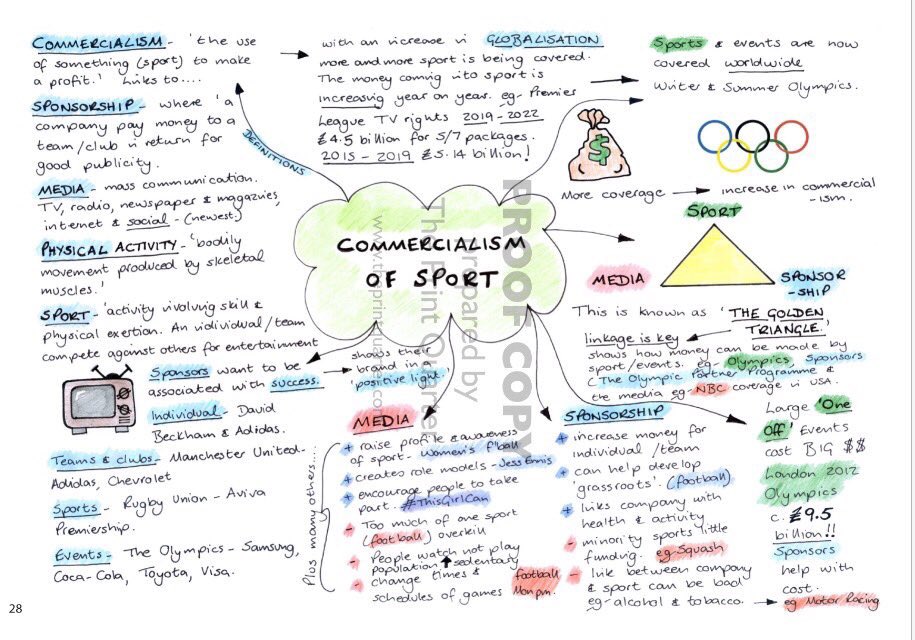 COMMERCIALISM - 'the use
of something (sport) to make
a profit.' Links to....
SPONSORSHIP - where 'a
company pay money to a
team/club in return for
good publicity.
MEDIA - mass communication.
TV, radio, newspaper & magazines,
internet & social - (newest)
PHYSICAL ACTIVITY - 'bodily
movement produced by skeletal
muscles.'
SPORT - 'activity involving skill &
physical exertion. An individual/team
compete against others for entertainment
DEFINITIONS
with an increase in GLOBALISATION
more and more sport is being covered.
The money coming into sport is
increasing year on year. eg - Premier
League TV rights 2019-2022
£4.5 billion for 5/7 packages.
2015 - 2019 £5.14 billion!
Sports & events are now
covered worldwide
Winter & Summer Olympics.
$
More coverage → increase in commercial
-ism.
COMMERCIALISM
OF SPORT
PROOF COPY
Prepared by
The Print Quarter
SPORT
MEDIA
SPONSOR
-SHIP
This is known as 'THE GOLDEN
TRIANGLE.'
linkage is key
shows how money can be made by
sport/events. eg Olympics, Sponsors
(The Olympic Partner Programme &
the media eg NBC coverage in USA.
Sponsors want to be
associated with success.
shows their
brand in a
'positive light'
Individual - David
Beckham & Adidas.
Teams & clubs - Manchester United-
Adidas, Chevrolet
Sports - Rugby Union - Aviva
Premiership.
Events - The Olympics - Samsung,
Coca-Cola, Toyota, Visa.
Plus many others...
MEDIA
+ raise profile & awareness
of sport - Women's f'ball
+ creates role models - Jess Ennis
+ encourage people to take
part. #ThisGirlCan
- Too much of one sport
(football) overkill
- People watch not play
population ↑ sedentary
- change times &
schedules of games
football
Mon pm.
SPONSORSHIP
+ increase money for
individual/team
+ can help develop
'grassroots'. (football)
+ links company with
health & activity
- minority sports little
funding. eg Squash
- link between company
& sport can be bad
eg - alcohol & tobacco. → eg Motor Racing
Large 'One
Off' Events
cost BIG $$
London 2012
Olympics
c. £9.5
billion!!
Sponsors
help with
cost.
28